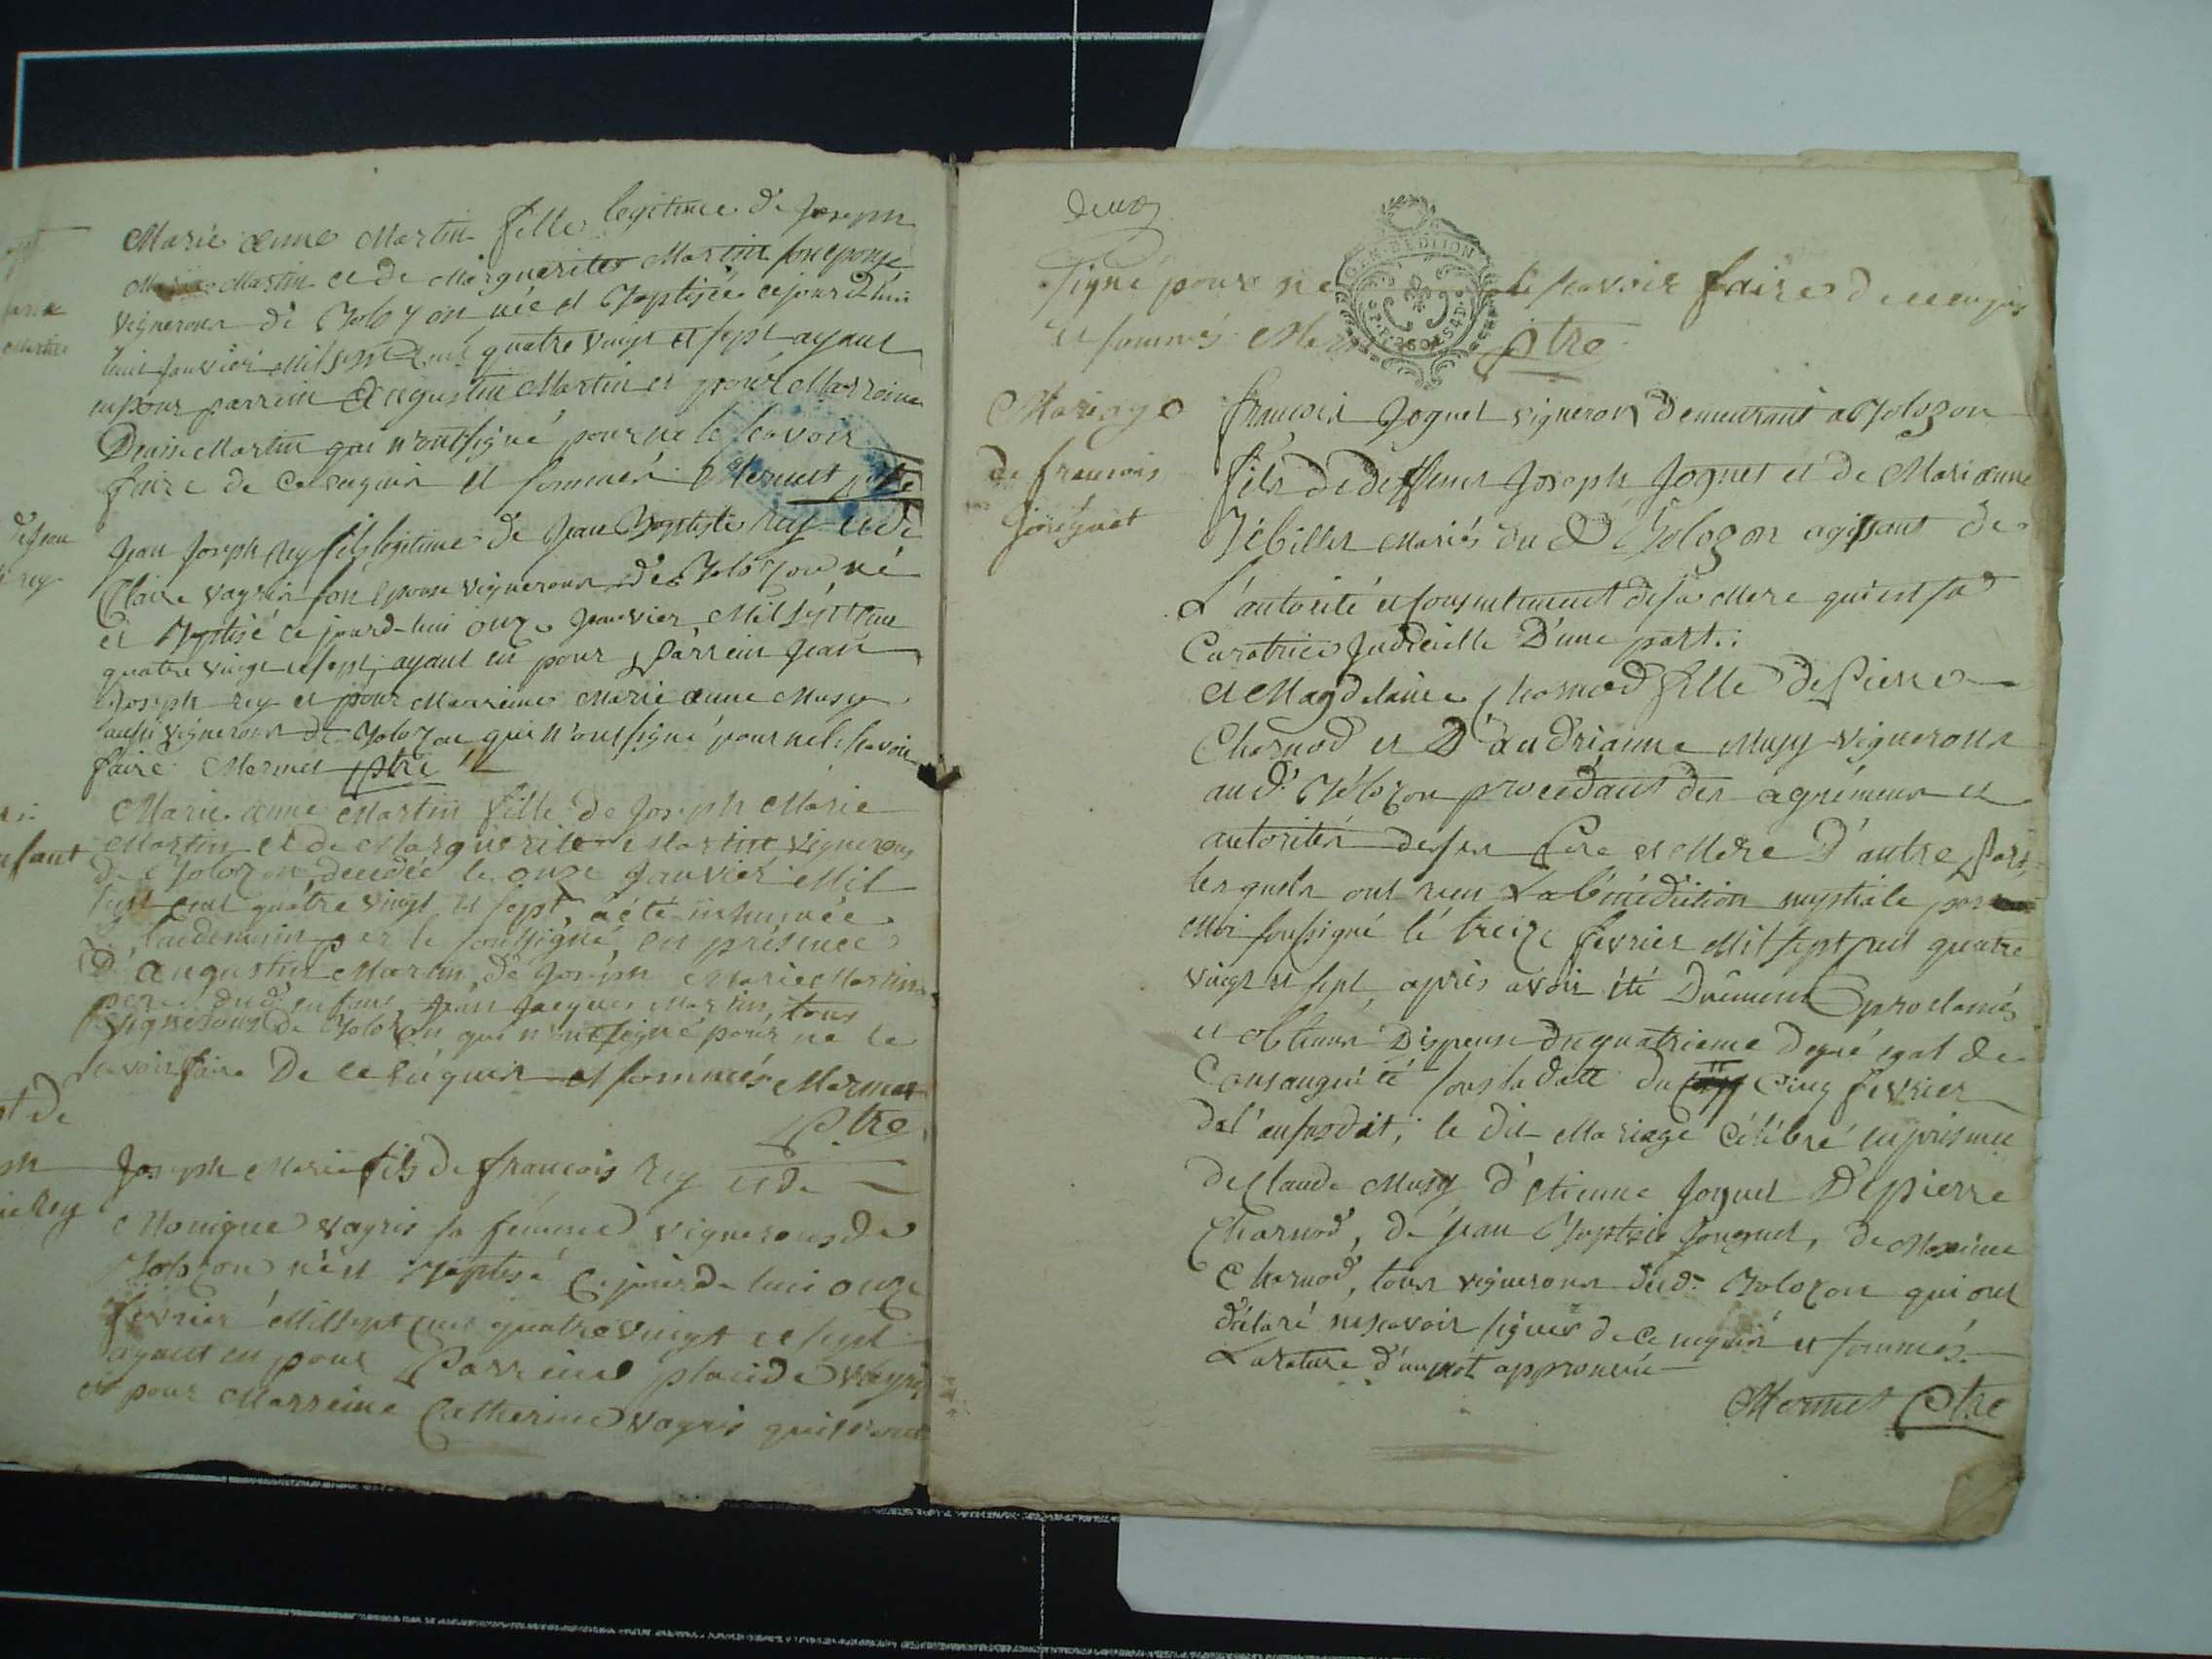 Marie anne Martin fille legitime de Joseph
Marie Martin et de Marguerite Martin son epouse
vignerons de Bolozon née et Baptisée ce jourd-hui
huit janvier Mil sept cent quatre vingt et sept ayant
eu pour parrein Augustin Martin et pour Marreine
Denise Martin qui n'ont signé pour ne le scavoir
faire de ce enquis et sommés Mermet ptre
de Jean
rey
Jean Joseph Rey fils legitime de Jean Baptiste Rey et de
Claire vagris son epouse vignerons de Bolozon né
et Baptisé ce jourd-hui onze janvier Mil sept cent
quatre vingt et sept, ayant eu pour Parrein Jean
Joseph rey et pour Marreine Marie anne Musy
aussi vignerons de Bolozon qui n'ont signé pour ne le scavoir
faire Mermet ptre
nfant
Marie anne Martin fille de Joseph Marie
Martin et de Marguerite Martin vignerons
de Bolozon decedée le onze Janvier Mil
sept cent quatre vingt et sept, a été inhumée
le lendemain par le soussigné, en présence
D'augustin Martin, de Joseph Marie Martin
pere dud. enfant, Jean Jacques Martin, tous
vignerons de Bolozon qui n'ont signé pour ne le
scavoir faire De ce enquis et sommés Mermet
Ptre
Joseph Marie fils de francois Rey et de
Monique vagris sa femme vignerons de
Bolozon né et Baptisé ce jourd-hui onze
fevrier Mil sept cent quatre vingt et sept
ayant eu pour Parreine placide vagris
et pour Marreine Catherine vagris qui n'ont
deux
GEN. DE DIJON
signé pour ne le scavoir faire de ce enquis
et sommés Mermet Ptre
Mariage
de francois
Jouguet
francois Joguet vigneron demeurant a Bolozon
fils de deffunt Joseph Joguet et de Marianne
Tébillet mariés dud. Bolozon agissant de
L'autorité et consentement de sa Mere qui est sa
Curatrice Judicielle D'une part:
et Magdelaine Charnod fille de Pierre
Charnod et D'andrianne Musy vignerons
aud. Bolozon procedant des agrémens et
autorités de ses Pere et Mere D'autre part,
lesquels ont recu La bénédiction nuptiale par
Moi soussigné le treize fevrier Mil sept cent quatre
vingt et sept, après avoir été Dûement proclamés
et obtenu Dispense du quatrieme degré egal de
Consanguinité sous la datte du cinq fevrier
de l'an susdit; le dit Mariage célébré en présence
de Claude Musy d'Etienne Joguet De pierre
Charnod, de Jean Baptiste Jouguet, de Maxime
Charnod, tous vignerons dud. Bolozon qui ont
déclaré ne scavoir signer de ce enquis et sommés.
La rature d'un mot approuvée
Mermet Ptre